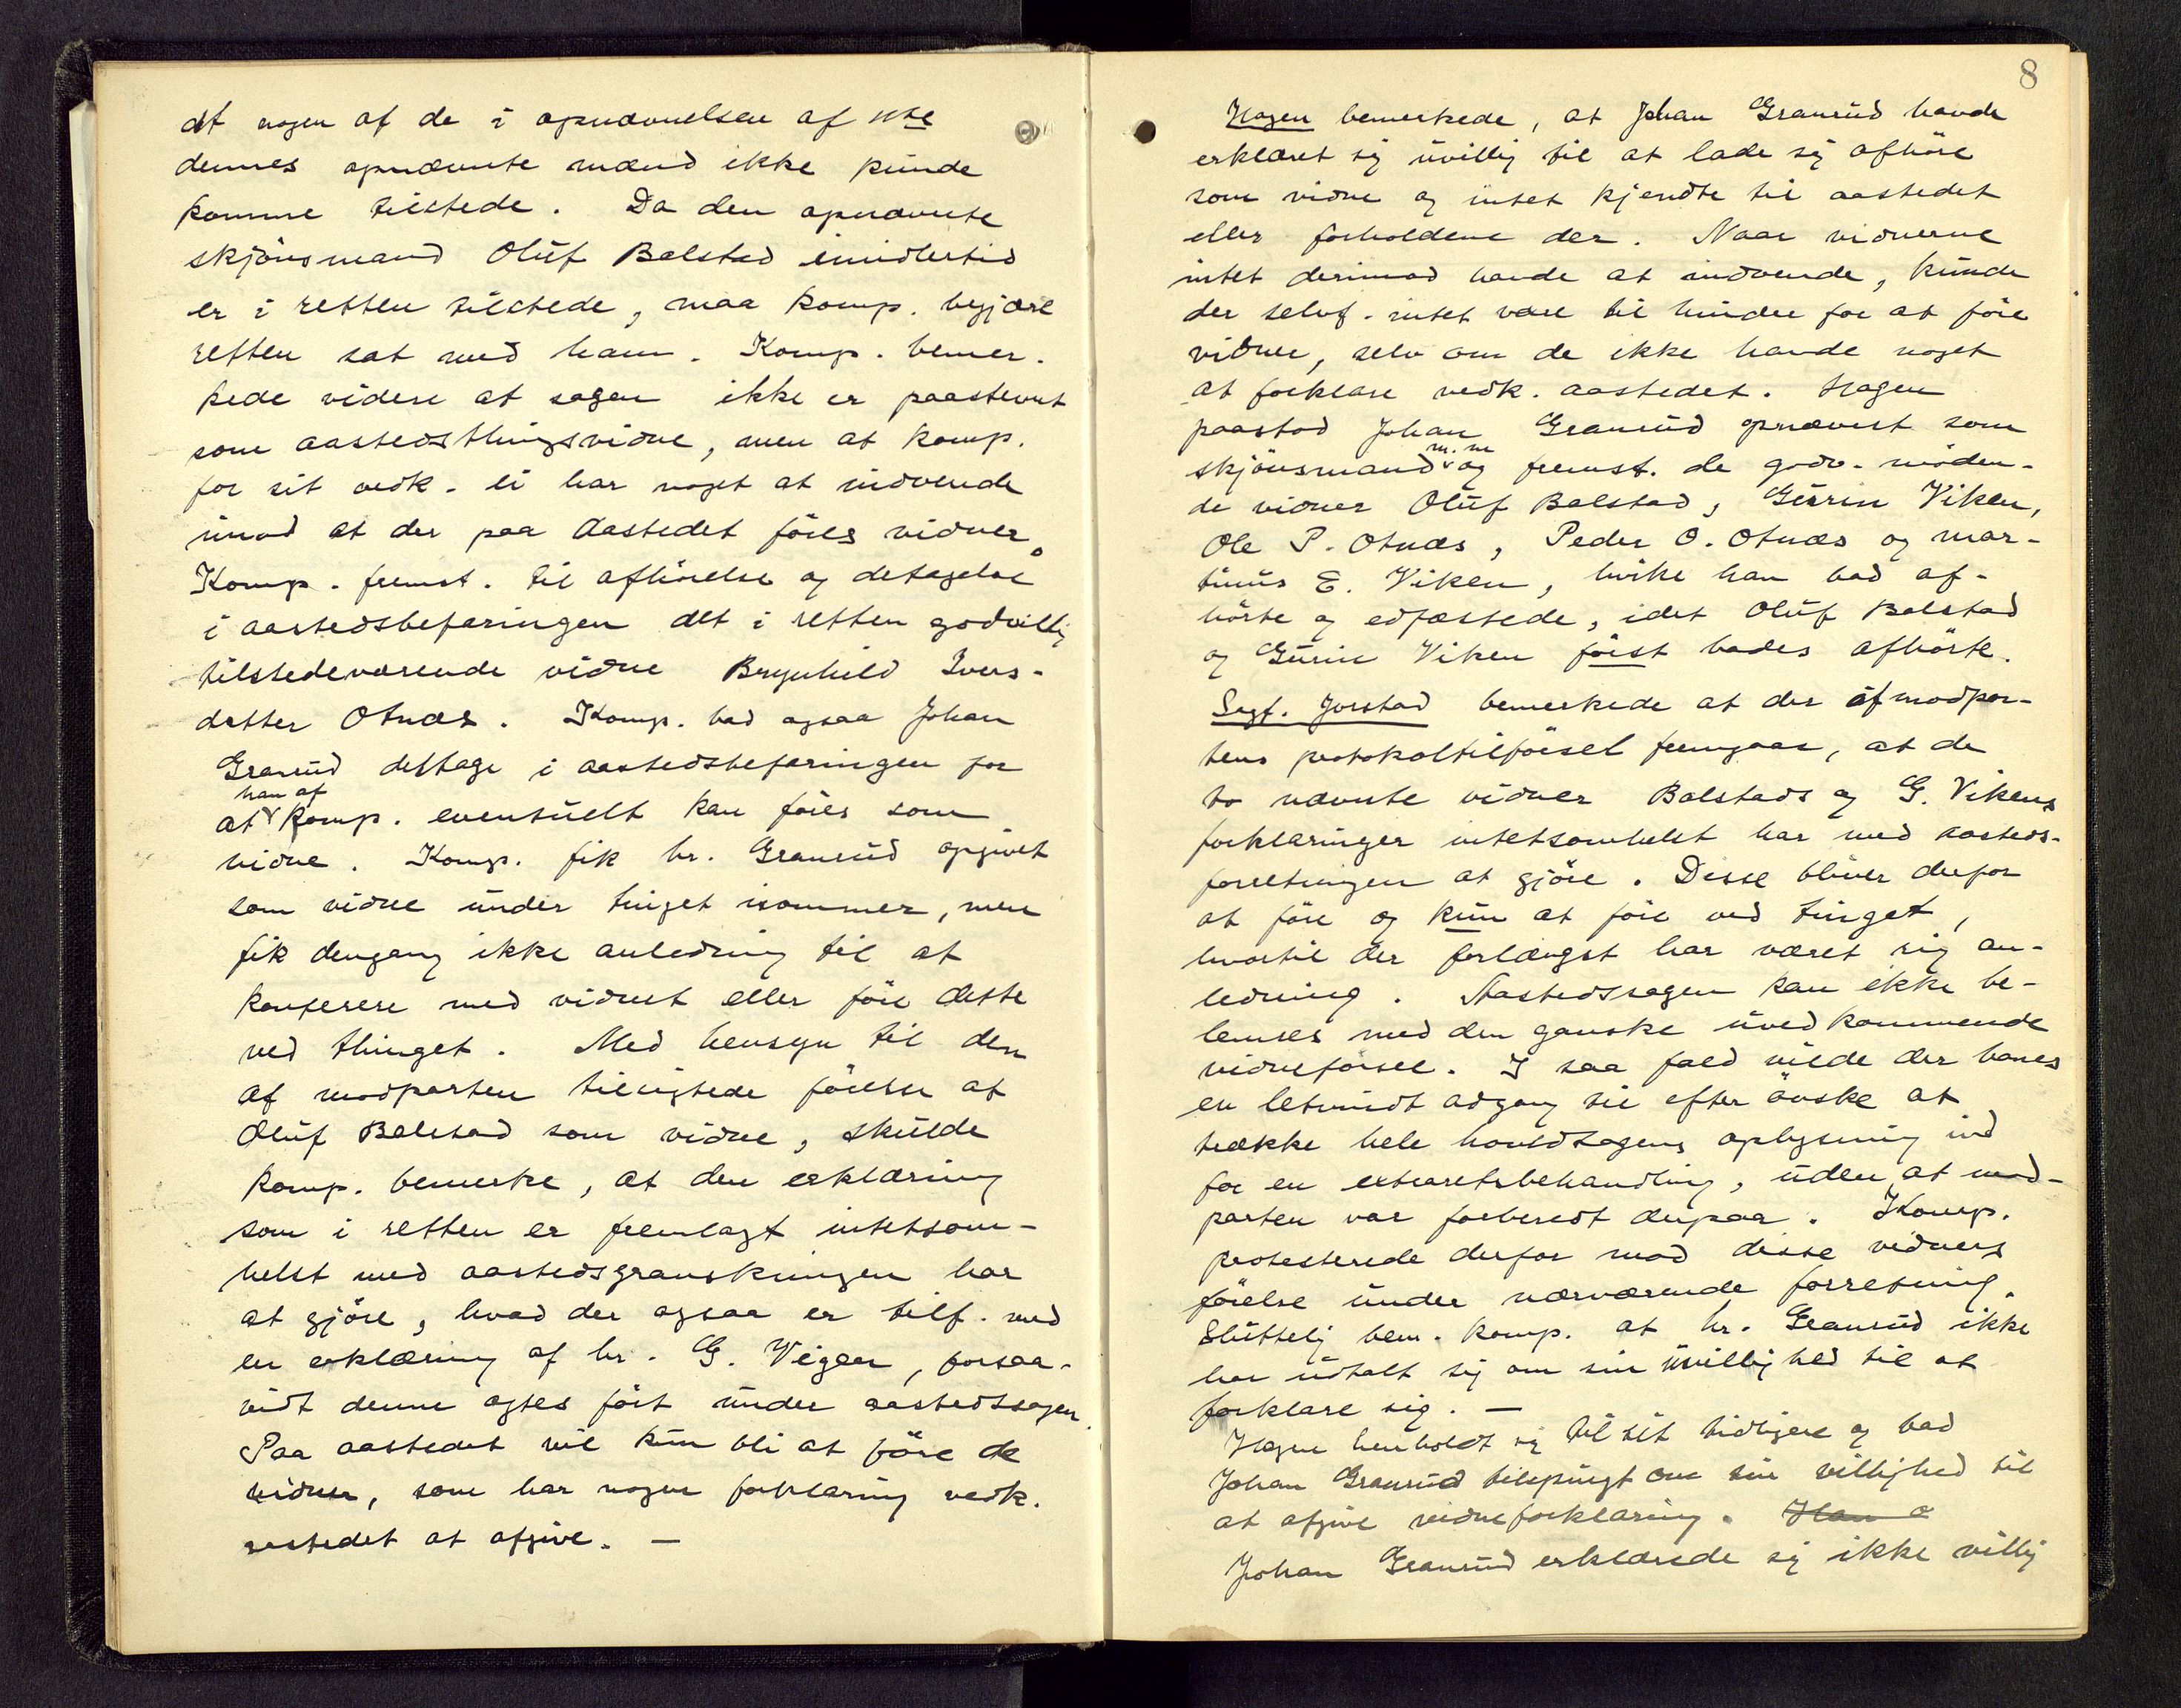 at nogen af de i opnævnelsen af 
dennes opnævnte mænd ikke kunde
komme tilstede. Da den opnævnte
skjönsmand Oluf Balstad imidlertid
er i retten tilstede, maa komp. begjære
retten sat med ham. Komp. bemer-
kede videre at sagen ikke er paastevnt
som aastedsthingsvidne, men at komp.
for sit vedk. ei har noget at indvende
imod at der paa Aastedet föres vidner.
Komp. fremst. til afhörelse og deltagelse
i aastedsbefaringen det i retten godvillig
tilstedeværende vidne Brynhild Ivers-
datter Otnæs. Komp. bad ogsaa Johan
Granrud deltage i aastedsbefaringen for
han af
at komp. eventuelt kan föres som
vidne. Komp. fik hr. Granrud opgivet
som vidne under tinget isommer, men
fik dengang ikke anledning til at
konferere med vidnet eller före dette
ved thinget. Med hensyn til den
af modparten tilsigtede förelse af
Oluf Balstad som vidne, skulde
komp. bemerke, at den erklæring
som i retten er fremlagt intetsom-
helst med aastedsgranskningen har
at gjöre, hvad der ogsaa er tilf. med
en erklæring af hr. G. Vigen, forsaa-
vidt denne agtes fört under aastedssagen.
Paa aastedet vil kun bli at före de
vidner, som har nogen forklaring vedk.
aastedet at afgive. —
8
Hagen bemerkede, at Johan Granrud havde
erklæret sig uvillig til at lade sig afhöre
som vidne og intet kjendte til aastedet
eller forholdene der. Naar vidnerne
intet derimod havde at indvende, kunde
der selvf. intet være til hinder for at före
vidner, selv om de ikke havde noget
at forklare vedk. aastedet. Hagen
paastod Johan Granrud opnævnt som
m.m
skjönsmand og fremst. de godv. möden-
de vidner Oluf Balstad, Gurin Viken,
Ole P. Otnæs, Peder O. Otnæs og Mar-
tinus E. Viken, hvike han bad af-
hörte og edfæstede, idet Oluf Balstad
og Gurin Viken först bades afhörte.
Sagf. Jorstad bemerkede at der af modpar-
tens protokoltilförsel fremgaar, at de
to nævnte vidner Balstads og G. Vikens
forklaringer intetsomhelst har med aasteds-
forretningen at gjöre. Disse bliver derfor
at före og kun at före ved tinget,
hvortil der forlængst har været rig an-
ledning. Aastedssagen kan ikke be-
lemres med den ganske uvedkommende
vidneförsel. I saa fald vilde der banes
en letvindt adgang til efter önske at
trække hele hovedsagens oplysning ind
for en extraretsbehandling, uden at mod-
parten var forberedt derpaa. Komp.
protesterede derfor mod disse vidners
förelse under nærværende forretning.
Sluttelig bem. komp. at hr. Granrud ikke
har udtalt sig om sin uvillighed til at
forklare sig. —
Hagen henholdt sig til sit tidligere og bad
Johan Granrud tilspurgt om sin villighed til
at afgive vidneforklaring. Han 
Johan Granrud erklærede sig ikke villig